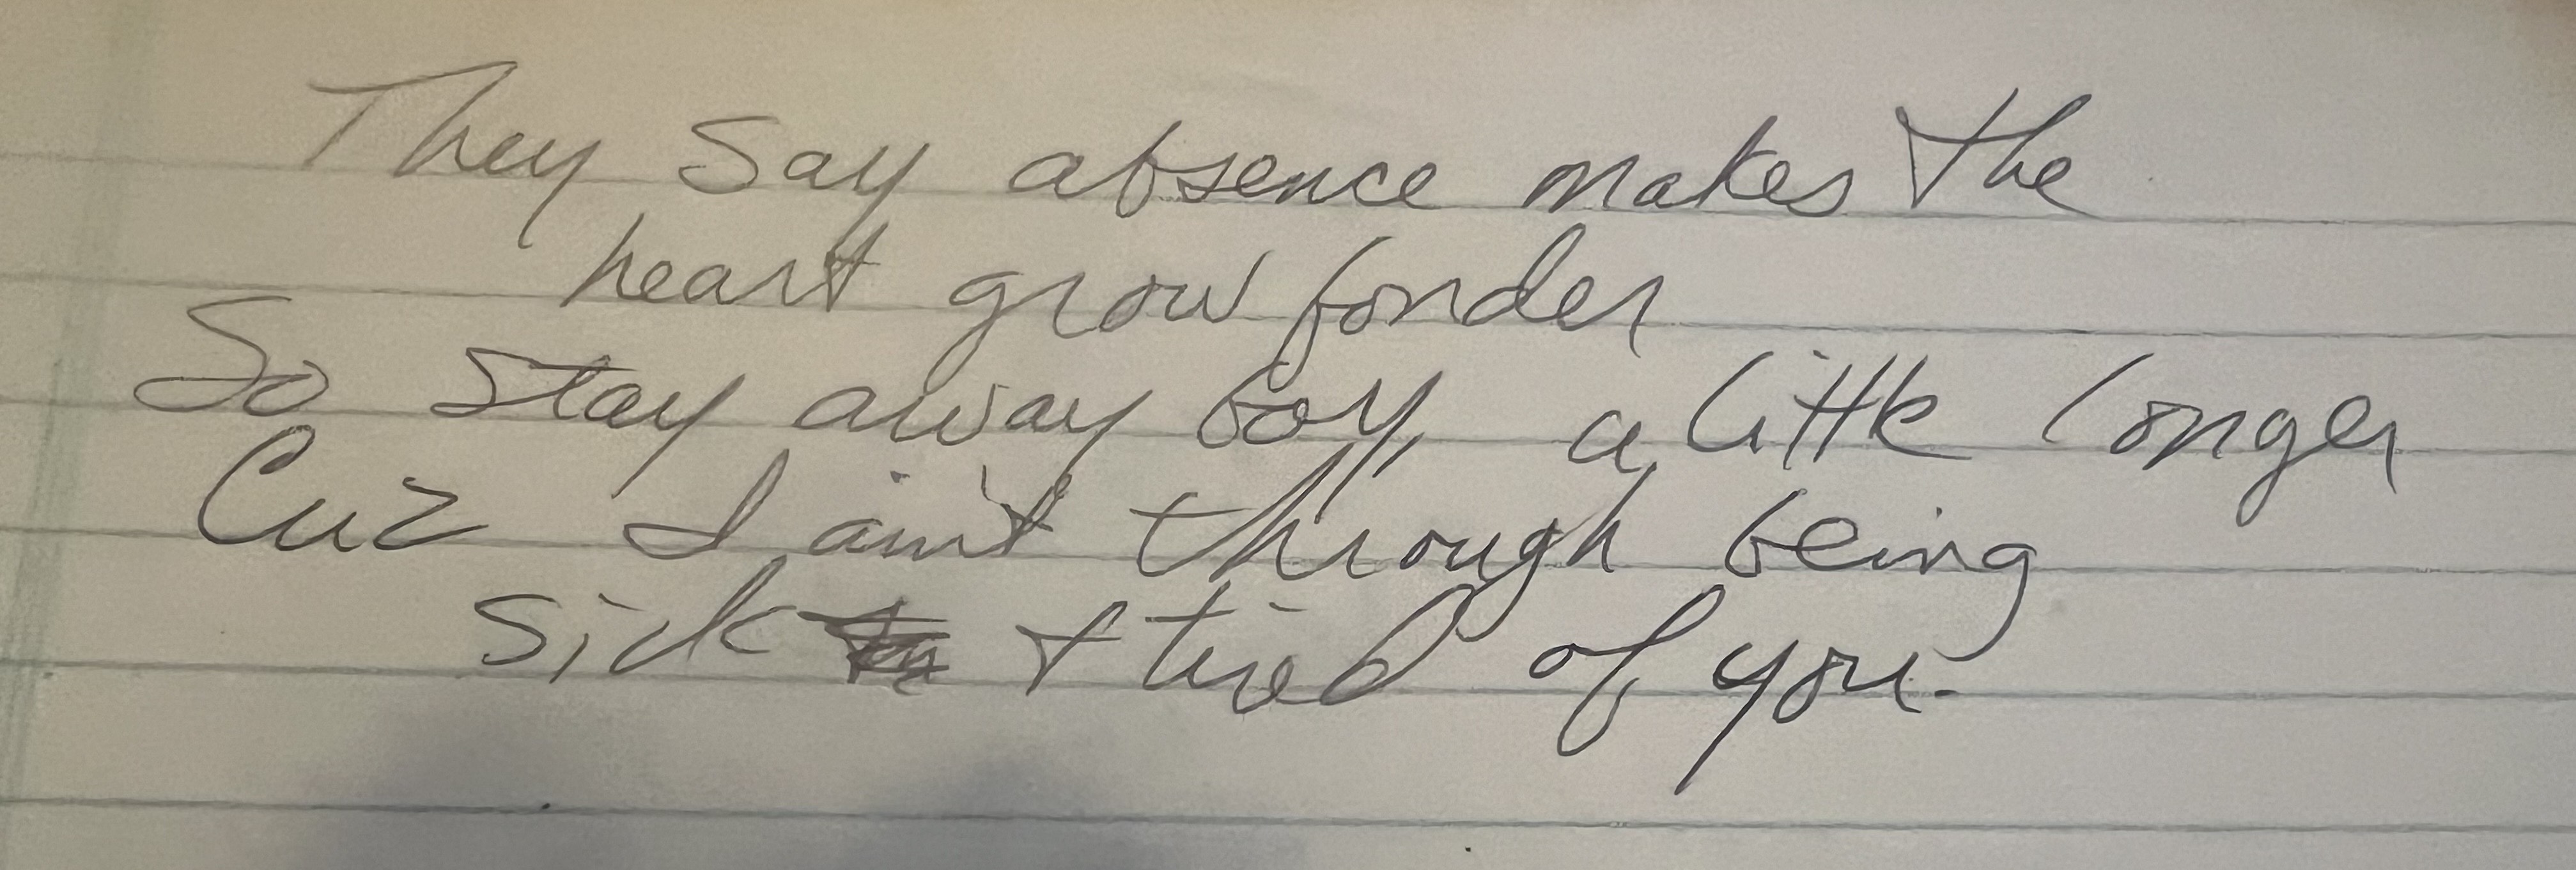 They say absence makes the
heart grow fonder
So stay away boy, a little longer
Cuz I ain't through being
sick + tired of you.